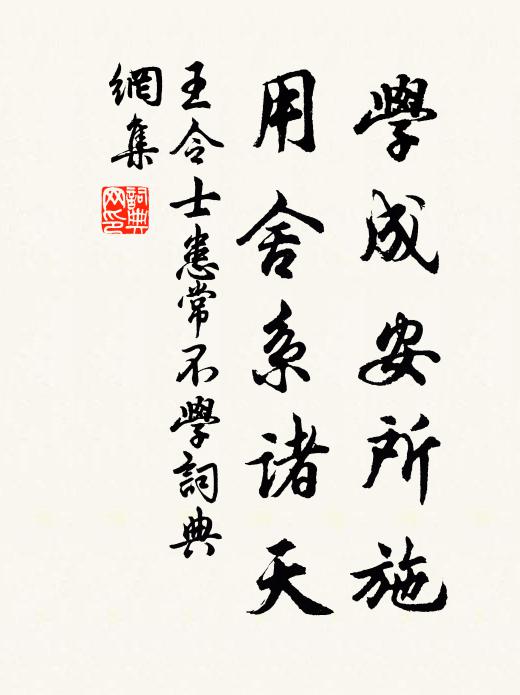 學成安所施
用舍系诸天
王令士患常不學詞典
網集
詞典
网印